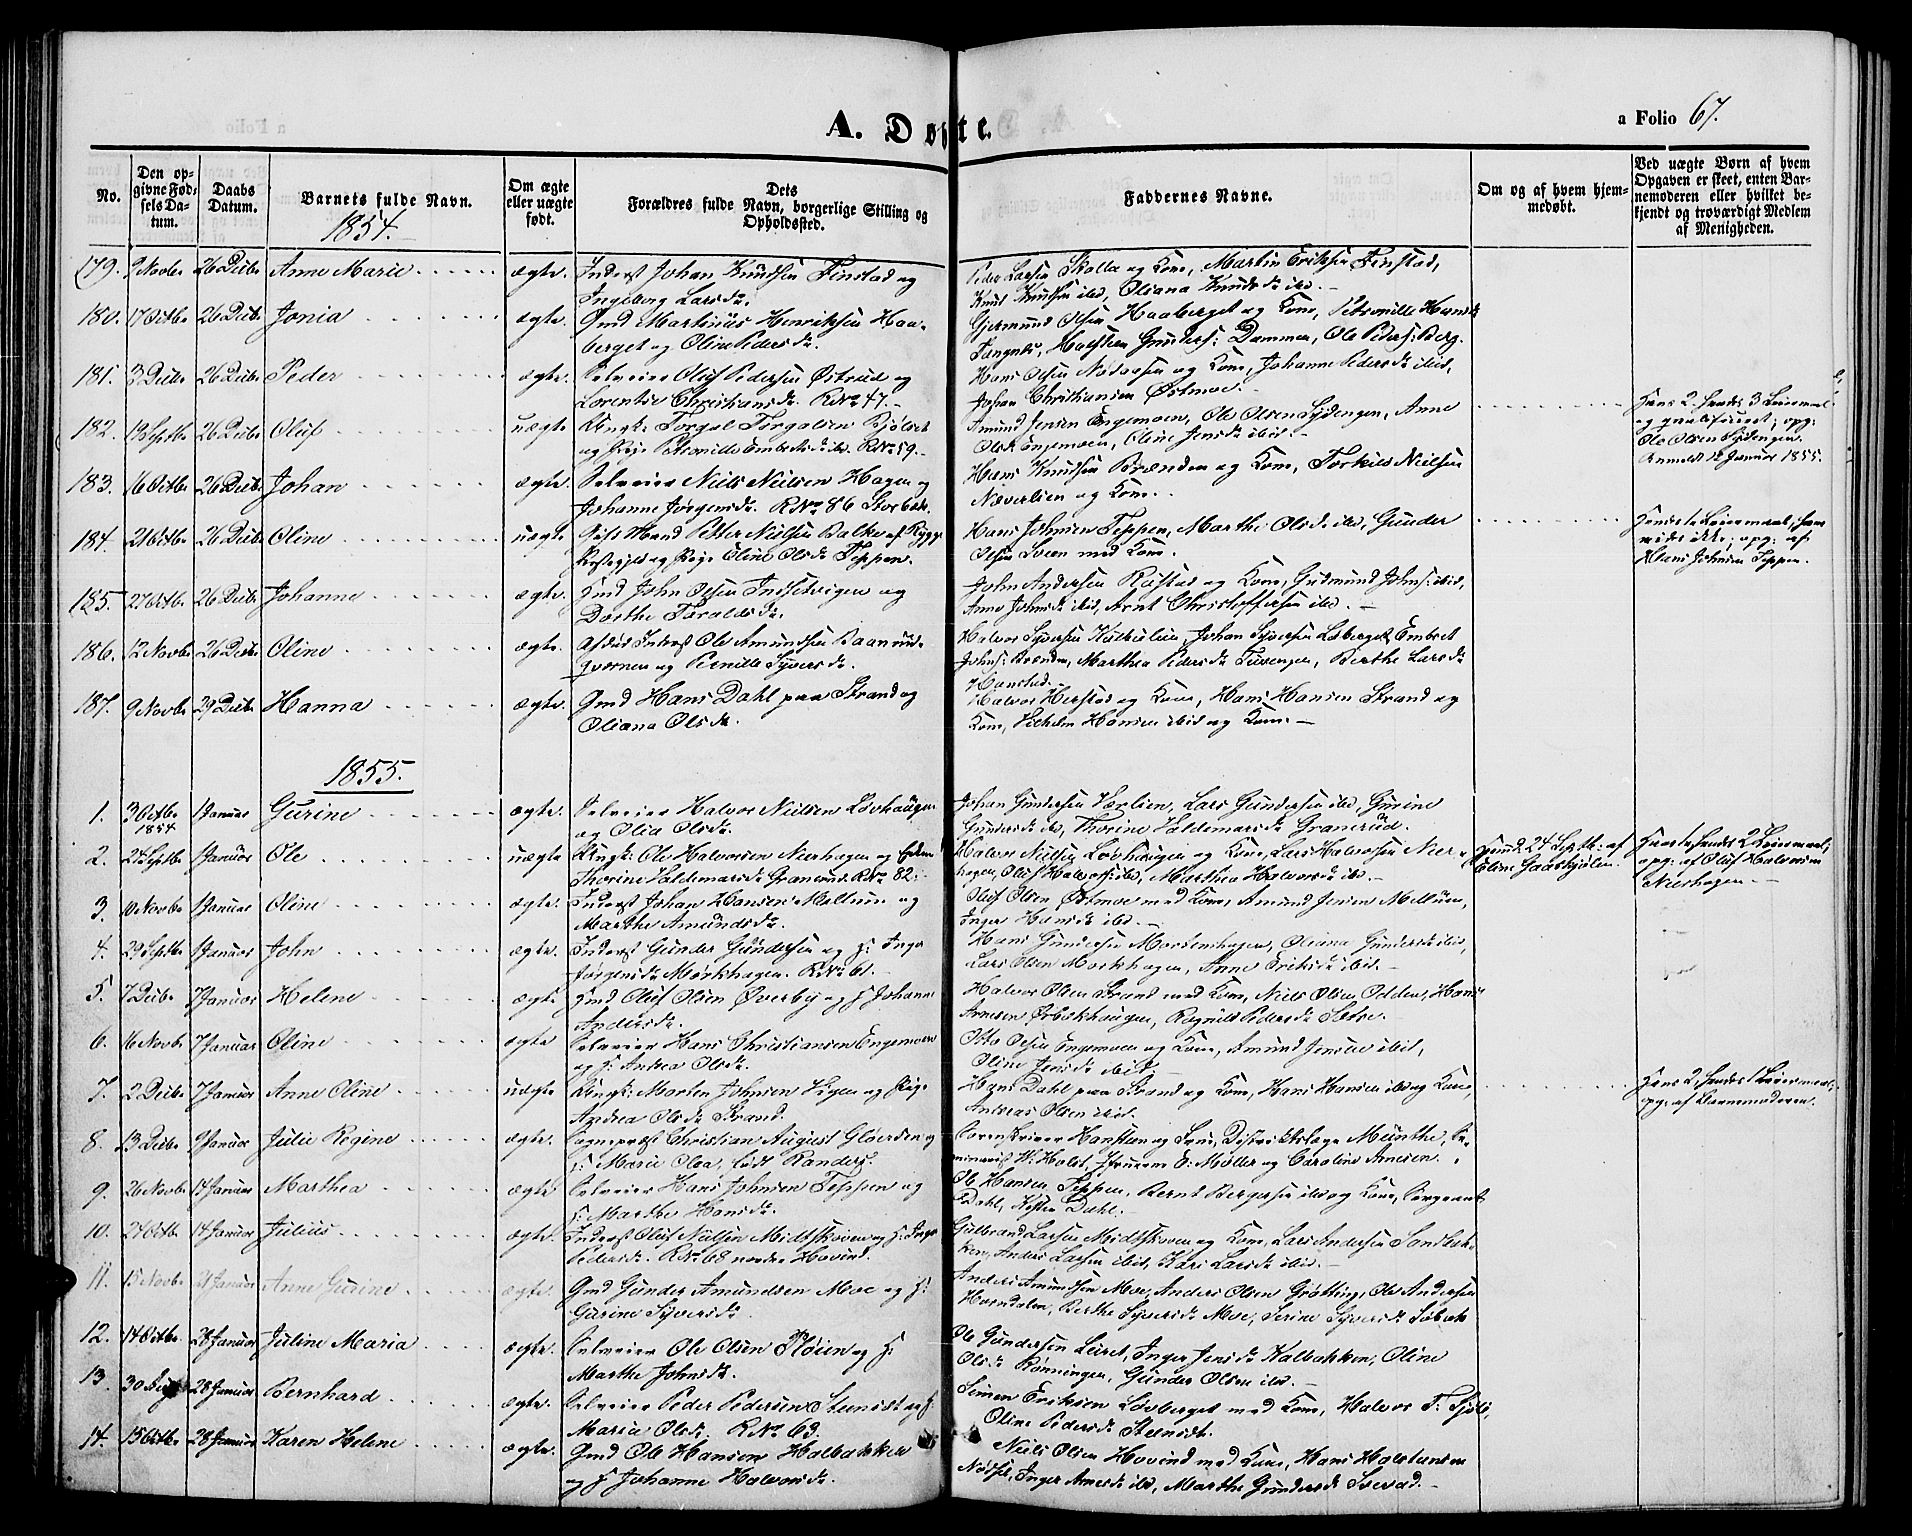 A. Døbte.
a Folio 67.
No.
Den opgivne Fødsels Datum.
Daabs Datum.
Barnets fulde Navn.
Om ægte eller uægte født.
Dets Forældres fulde Navn, borgerlige Stilling og Opholdssted.
Faddernes Navne.
Om og af hvem hjemmedøbt.
Ved uægte Børn af hvem Opgaven er skeet, enten Barnemoderen eller hvilket bekjendt og troværdigt Medlem af Menigheden.
1854.
179. 9 Novbr 26 Decbr Anne Marie ægte. Inderst Johan Knudsen Finstad og
Ingeborg Larsdr.
Peder Larsen Skolla og Kone, Martin Eriksen Finstad,
Knut Knudsen ibid, Oliana Knudsdr ibid.
180. 17 Octbr 26 Decbr Jonia ægte. Gmd Martinus Henriksen Haa-
berget og Oline Pedersdr.
Gjermund Olsen Haaberget og Kone, Petronille Hansdr
Gunders: Dammen, Ole Peders: Berg.
181. 3 Decbr 26 Decbr Peder ægte. Selveier Oluf Pedersen Østrud og
Lorentse Christiansdr. RNo 47.
Hans Olsen og Kone, Johanne Pedersdr ibid,
Johan Christiansen Østmoe.
182. 19 Septbr 26 Decbr Oluf uægte Ungk: Torgal Torgalsen Kjølset
og Pige Petronille Embretsdr ibd. RNo 59.
Amund Jensen Engemoen, Ole Olsen Lydengen, Anne
Olsdr Engemoen, Oline Jensdr ibid.
Hans 2. Hendes 3 Leiermaal
opg:
Ole Olsen Lydengen.
Anmeldt 12 Januar 1855.
183. 16 Octbr 26 Decbr Johan ægte. Selveier Niels Nielsen Hagen og
Johanne Jørgensdr. RNo 86
Hans Knudsen Brænden og Kone, Torkild Nielsen
Næverlien og Kone.
184. 21 Octbr 26 Decbr Oline uægte Gift Mand Petter Nielsen Balke af Rygge
Præstegjeld og Pige Eline Olsdr Teppen.
Hans Johnsen Teppen, Marthe Olsdr ibd, Gunder
Olsen Sveen med Kone.
Hendes 1 Leiermaal, hans
vides ikke; opg: af
Hans Johnsen Teppen.
185. 27 Octbr 26 Decbr Johanne ægte. Gmd John Olsen Indsetvigen og
Dorthe Taraldsdr.
John Andersen Rustad og Kone, Gudmund Johns: ibid,
Anne Johnsdr ibid, Arnt Christoffersen ibd.
186. 12 Novbr 26 Decbr Oline ægte. Afdød Inderst Ole Amundsen Baanrud-
qværnen og Pernille Syversdr.
Halvor Syversen Kudkulien, Johan Syversen Løberget, Embret
Johns: Brænden, Marthea Pedersdr Tusengen, Berthe Larsdr
Hanstad.
187. 9 Novbr 29 Decbr Hanna ægte. Gmd Hans Dahl paa Strand og
Oliana Olsdr.
Halvor Herstad og Kone, Hans Hansen Strand og
Kone, Vilhelm Hansen ibid og Kone.
1855.
1. 3 Octbr 1854 1 Januar Gurine ægte. Selveier Halvor Nielsen Løvhaugen
og Olia Olsdr.
Johan Gundersen Værlien, Lars Gundersen ibd, Gurine
Gundersdr ibd, Thorine Valdemarsdr Granerud.
2. 24 Septbr 1 Januar Ole uægte Ungk: Ole Halvorsen Nierhagen og
Thorine Valdemarsdr Granerud. RNo 82.
Halvor Nielsen Løvhaugen og Kone, Lars Halvorsen Nier-
hagen, Oluf Halvors: ibd, Marthea Halvorsdr ibd.
hjemmd. 24 Septbr: af
Eline Gaaskjølen.
Hans 1 Hendes 2 Leiermaal,
opg: af Oluf Halvorsen
Nierhagen.
3. 10 Novbr 1 Januar Oline ægte. Inderst Johan Hansen Meltrum og
Marthe Amundsdr.
Oluf Olsen Østmoe med Kone, Amund Jensen Mellum,
Inger Hansdr ibd.
4. 29 Septbr 1 Januar John ægte. Inderst Gunder Gundersen og H: Inger
Jørgensdr Mørkhagen. RNo 61.
Hans Gundersen Mortenshagen, Oliana Gundersdr ibid,
Lars Olsen Morkhagen, Anne Eriksdr ibid.
5. 7 Decbr 7 Januar Helene ægte Gmd Oluf Olsen Øverby og H Johanne
Andersdr.
Halvor Olsen Strand med Kone, Niels Olsen Odden, Hans
Arnesen Ørbækhaugen, Ragnild Pedersdr Sætre.
6. 16 Novbr 7 Januar Oline ægte Selveier Hans Christiansen Engemoen
og H: Andrea Olsdr.
Otto Olsen Engemoen og Kone, Amund Jensen ibid,
Oline Jensdr ibid.
7. 2 Decbr 7 Januar Anne Oline uægte Ungk: Morten Johnsen Vigen og Pige
Andrea Olsdr Strand.
Hans Dahl paa Strand og Kone, Hans Hansen ibd og Kone,
Andreas Olsen ibid.
Hans 2, hendes 1 Leiermaal;
opg: af Barnemoderen.
8. 13 Decbr 9 Januar Julie Regine ægte. Sognepræst Christian August Gløersen og
H: Marie Olea, født Randers.
Sorenskriver Hansteen og Frue, Districtslæge Munthe, Se-
minarist W: Holst, Jfruerne E: Møller og Caroline Arnesen.
9. 26 Novbr 14 Januar Marthea ægte Selveier Hans Johnsen Teppen og
H: Marthe Hansdr.
Ole Hansen Teppen, Bernt Bergersen ibd og Kone, Sergeant
Dahl, Kersten Dahl.
10. 24 Octbr 14 Januar Julius ægte. Inderst Oluf Nielsen Midtskoven og H: Inger
Pedersdr. RNo 68 nordre Hovind.
Gulbrand Larsen Midtskoven og Kone, Lars Andersen Sandbak-
ken, Anders Larsen ibid, Kari Larsdr ibid.
11. 15 Novbr 21 Januar Anne Gurine ægte. Gmd Gunder Amundsen Moe og H:
Gurine Syversdr.
Anders Amundsen Moe, Anders Olsen Grøtting, Ole Andersen
Horndalen, Berthe Syversdr Moe, Serine Syversdr
12. 14 Octbr 28 Januar Juline Maria ægte. Selveier Ole Olsen Pløien og H:
Marthe Johnsdr.
Ole Gundersen Leiret, Inger Jensdr Kalbakken, Oline
Olsdr Rønningen, Gunder Olsen ibd.
13. 30 28 Januar Bernhard ægte. Selveier Peder Pedersen Steinset og H:
Maria Olsdr. RNo 63.
Simen Eriksen Løvberget med Kone, Halvor T:
Oline Pedersdr Steinset.
14. 15 Octbr 28 Januar Karen Helene ægte. Gmd Ole Hansen Kalbakken
og H Johanne Halvorsdr.
Niels Olsen Hovind med Kone, Hans Halstensen
Nødset, Inger Arnesdr ibd, Marthe Gundersdr Sverad.